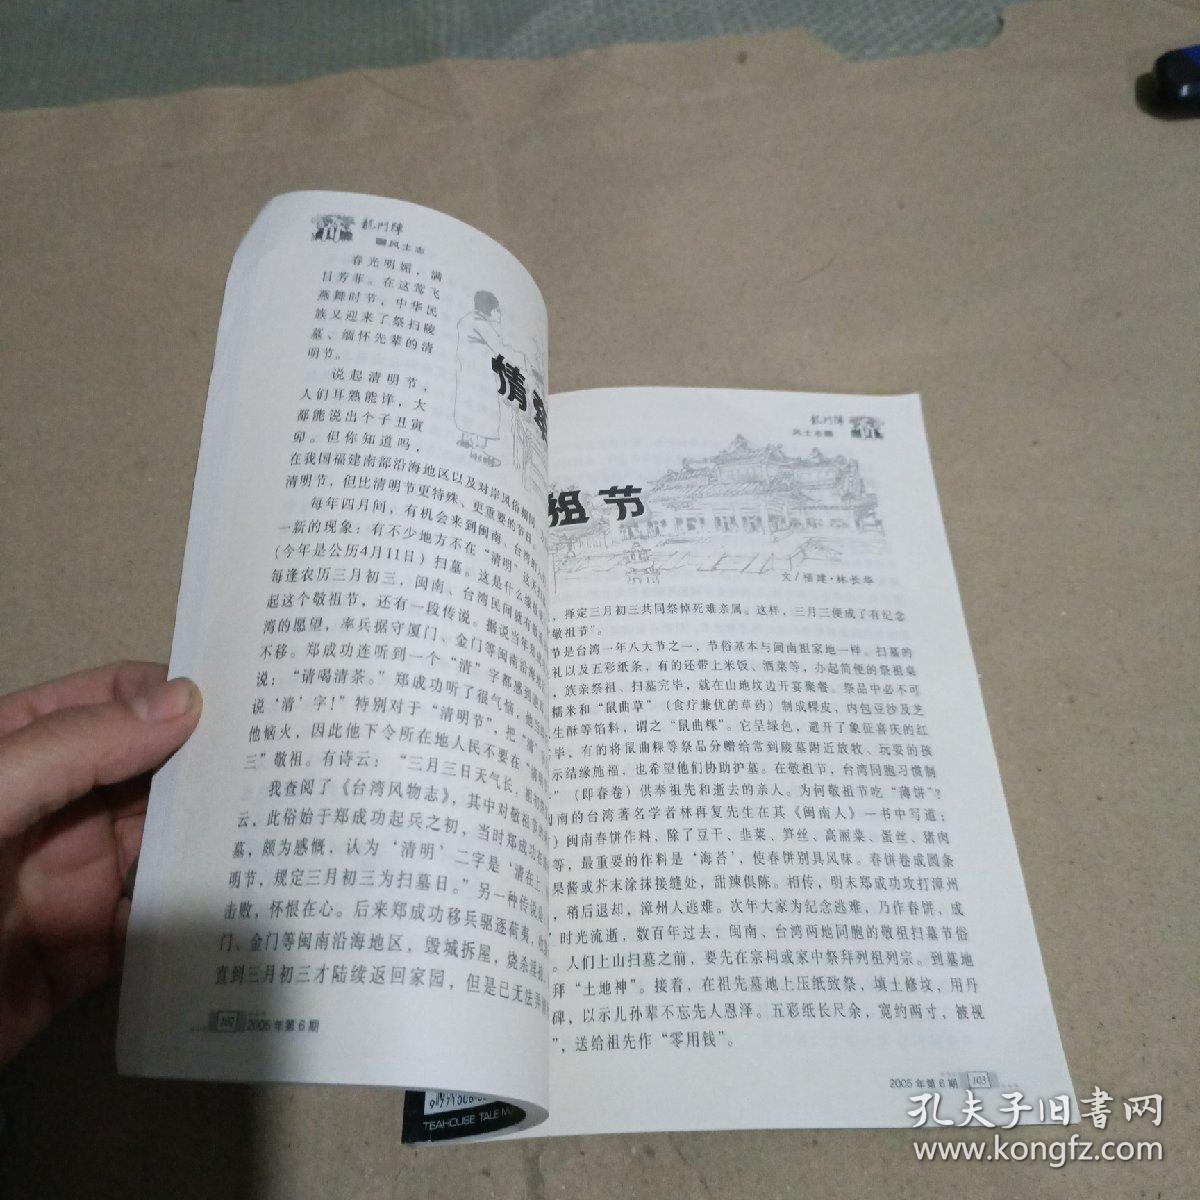 龍门陣
风土志
春光明媚，满
目芳菲。在这莺飞
燕舞时节，中华民
族又迎来了祭扫陵
墓、缅怀先辈的清
明节。
说起清明节，
人们耳熟能详，大
都能说出个子丑寅
卯。但你知道吗，
在我国福建南部沿海地区以及对岸风俗相同
清明节，但比清明节更特殊、更重要的节日
每年四月间，有机会来到闽南、台湾的
一新的现象：有不少地方不在“清明”这天
(今年是公历4月11日）扫墓。这是什么缘
每逢农历三月初三，闽南、台湾民间就有
起这个敬祖节，还有一段传说。据说当年郑
湾的愿望，率兵据守厦门、金门等闽南沿海
不移。郑成功连听到一个“清”字都感到
说：“请喝清茶。”郑成功听了很气恼，他
说‘清’字！”特别对于“清明节”，把“清”
他恼火，因此他下令所在地人民不要在“清明
三”敬祖。有诗云：“三月三日天气长，祖
我查阅了《台湾风物志》，其中对敬祖节
云，此俗始于郑成功起兵之初，当时郑成功在
墓，颇为感慨，认为‘清明’二字是‘清在上，
明节，规定三月初三为扫墓日。”另一种传说
击败，怀恨在心。后来郑成功移兵驱逐荷夷，
门、金门等闽南沿海地区，毁城拆屋，烧杀
直到三月初三才陆续返回家园，但是已无法
102 2005年第6期
情
龍门陣
风土志
祖节
文/福建·林长华
，择定三月初三共同祭悼死难亲属。这样，三月三便成了有纪念
敬祖节”。
节是台湾一年八大节之一，节俗基本与闽南祖家地一样。扫墓的
礼以及五彩纸条，有的还带上米饭、酒菜等，办起简便的祭祖桌
，族亲祭祖、扫墓完毕，就在山地坟边开宴聚餐。祭品中必不可
糯米和“鼠曲草”（食疗兼优的草药）制成粿皮，内包豆沙及芝
生酥等馅料，谓之“鼠曲粿”。它呈绿色，避开了象征喜庆的红
毕，有的将鼠曲粿等祭品分赠给常到陵墓附近放牧、玩耍的孩
示结缘施福，也希望他们协助护墓。在敬祖节，台湾同胞习惯制
”（即春卷）供奉祖先和逝去的亲人。为何敬祖节吃“薄饼”？
闽南的台湾著名学者林再复先生在其《闽南人》一书中写道：
）闽南春饼作料，除了豆干、韭菜、笋丝、高丽菜、蛋丝、猪肉
等，最重要的作料是‘海苔’，使春饼别具风味。春饼卷成圆条
果酱或芥末涂抹接缝处，甜辣俱陈。相传，明末郑成功攻打漳州
，稍后退却，漳州人逃难。次年大家为纪念逃难，乃作春饼，成
”时光流逝，数百年过去，闽南、台湾两地同胞的敬祖扫墓节俗
。人们上山扫墓之前，要先在宗祠或家中祭拜列祖列宗。到墓地
拜“土地神”。接着，在祖先墓地上压纸致祭，填土修坟，用丹
碑，以示儿孙辈不忘先人恩泽。五彩纸长尺余，宽约两寸，被视
”，送给祖先作“零用钱”。
2005年第6期 103
TEAHOUSE TALE
孔夫子旧书网
www.kongfz.com